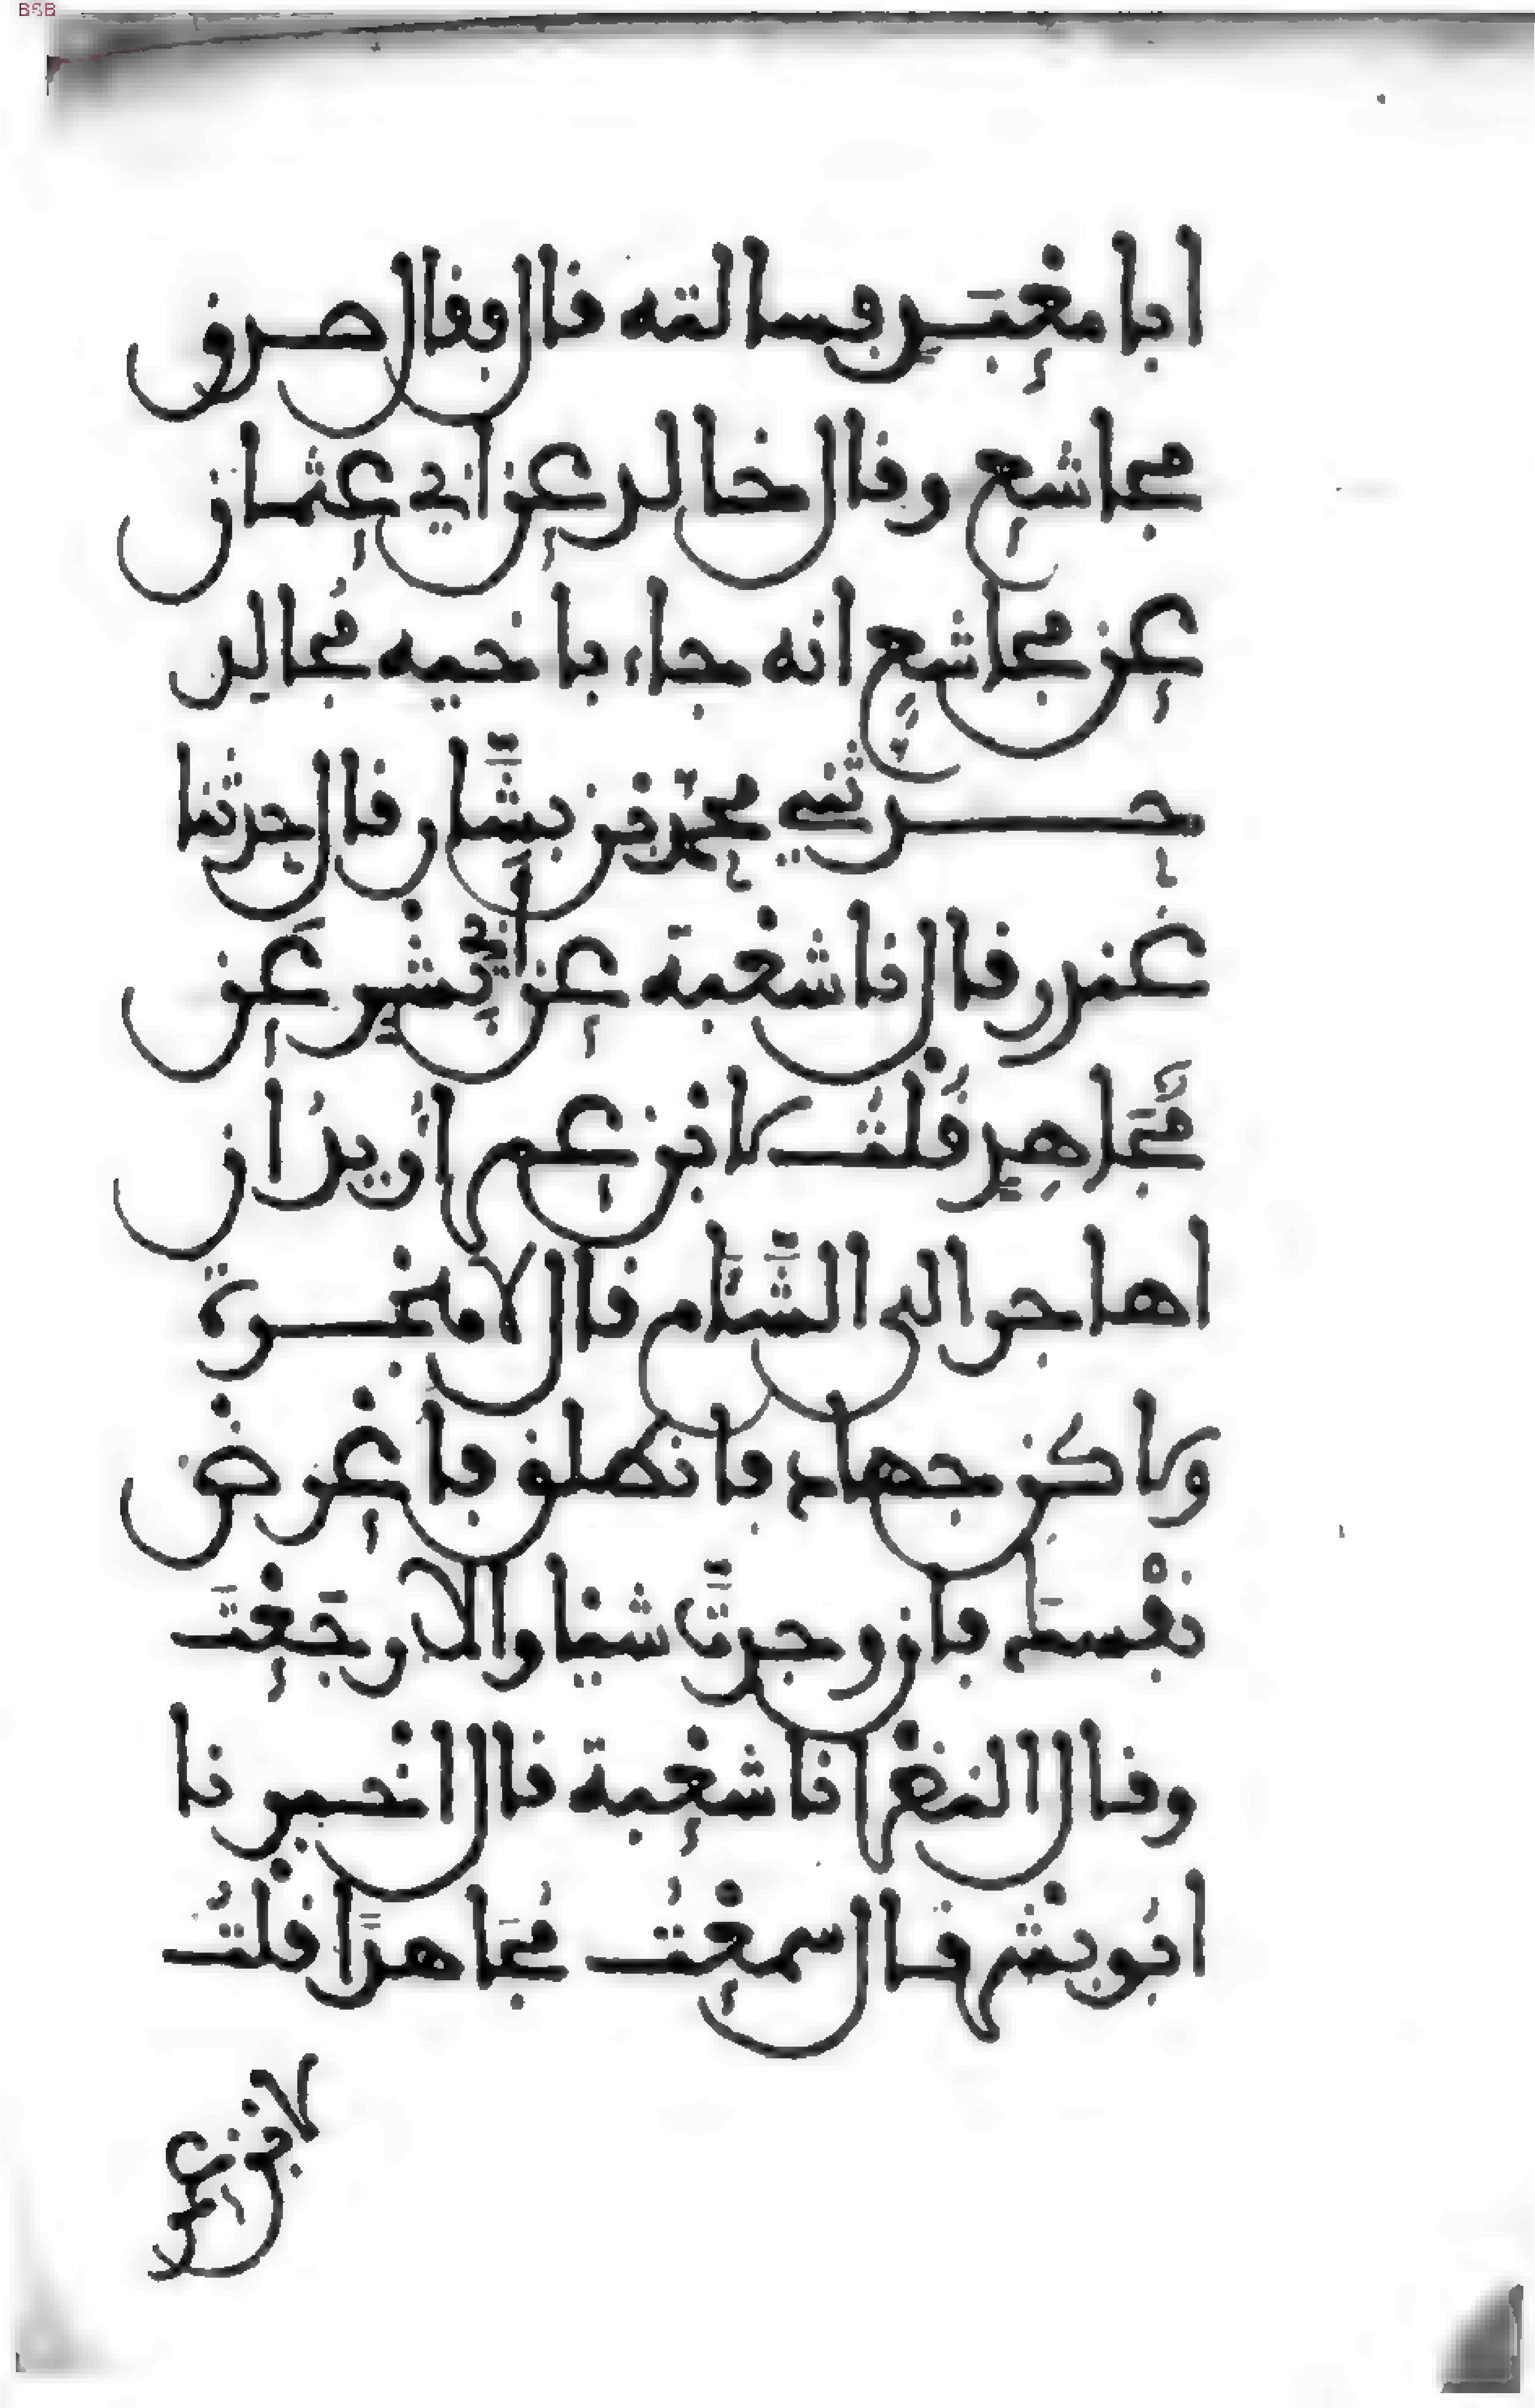 ابا معبد فسالته فال ففال صدق
مجاشع وقال خالد عن ابي عثمان
عن مجاشع انه جاء باخيه مجالد
حدثني محمد بن بشار قال حدثنا
غندر قال نا شعبة عن ابي بشر عن
مجاهد قلت لابن عمر اريد ان
اهاجر الى الشام قال لا هجرة
ولاكن جهاد فانطلق فاعرض
نفسك فان وجدت شيئا والا رجعت
وقال النضر انا شعبة قال اخبرنا
ابو بشر قال سمعت مجاهدا قلت
لابن عمر